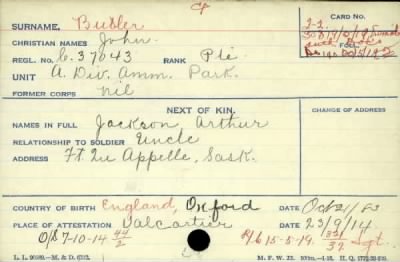 Cf
SURNAME, Butler
CHRISTIAN NAMES John
REGL. No. C. 37043 RANK Pte.
UNIT A. Div. Amm. Park.
FORMER CORPS nil
CARD No.
FOLL.
NEXT OF KIN.
NAMES IN FULL Jackson Arthur
RELATIONSHIP TO SOLDIER Uncle
ADDRESS Ft. Qu Appelle, Sask.
CHANGE OF ADDRESS
COUNTRY OF BIRTH England, Oxford DATE Oct 21/83
PLACE OF ATTESTATION Valcartier DATE 23/9/14
O/S 7-10-14 44/2 15-5-19. Sgt.
L. L. 90989.—M. & D. M. F. W. 22.